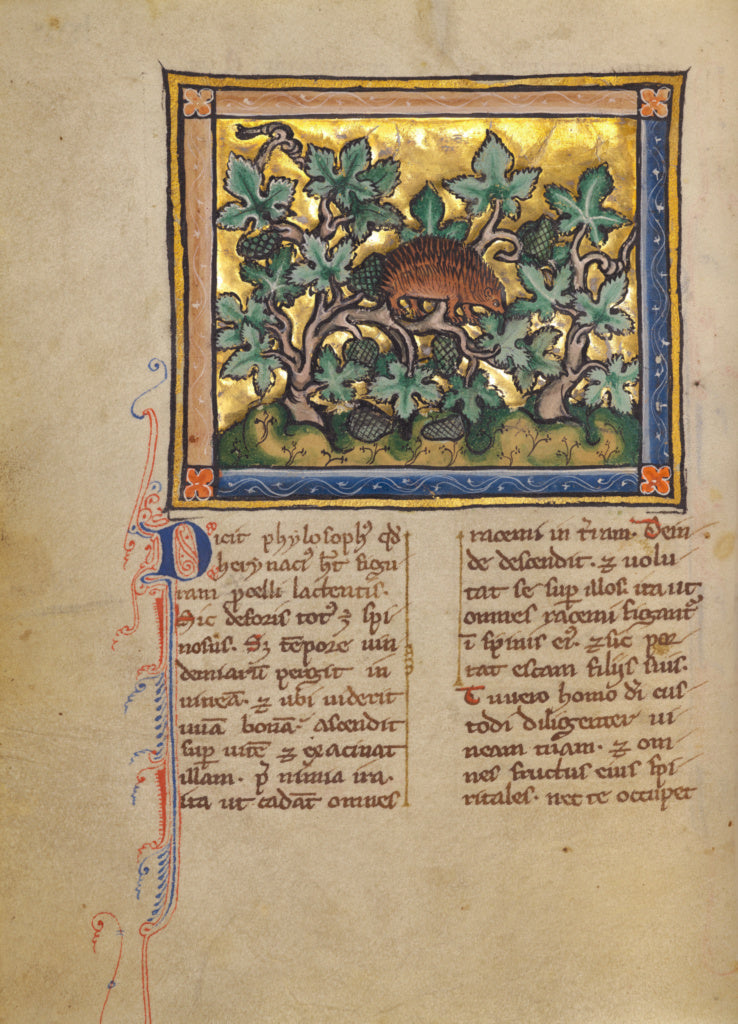 Dicit phylosophꝰ qđ
herynaciꝰ hʒ figu
ram porelli lactentis.
Sic deforis totꝰ ē spi
nosus. Sʒ tēpore uin
demiarū pergit in
uineā. ⁊ ubi uiderit
uuā bonā. ascendit
suꝑ uitē ⁊ exacinat
illam. ꝑ nimia ira.
ita ut cadāt omnes
racemi in t̄ram. Dein
de descendit. ⁊ uolu
tat se suꝑ illos. ita ut
omnes racemi figantᷣ
ī spinis eiꝰ. ⁊ sic por
tat escam filijs suis.
Tu uero homo d̄i cus
todi diligenter ui
neam tuam. ⁊ om
nes fructus eius spi
ritales. nec te occupet